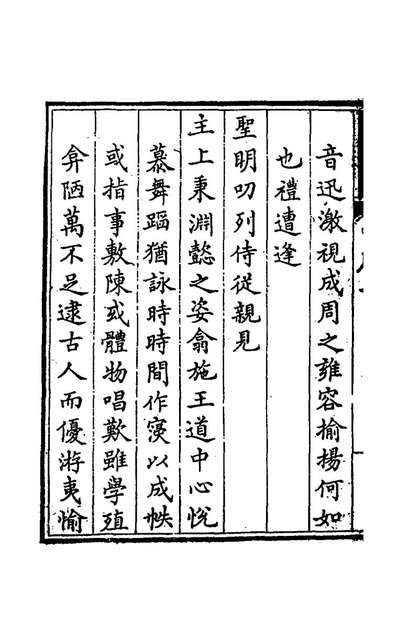 音迅激視成周之雍容揄揚何如
也禮遭逢
聖明叨列侍從親見
主上秉淵懿之姿翕施王道中心悅
慕舞蹈猶詠時時間作寖以成帙
或指事敷陳或體物唱歎雖學殖
弇陋萬不足逮古人而優游夷愉